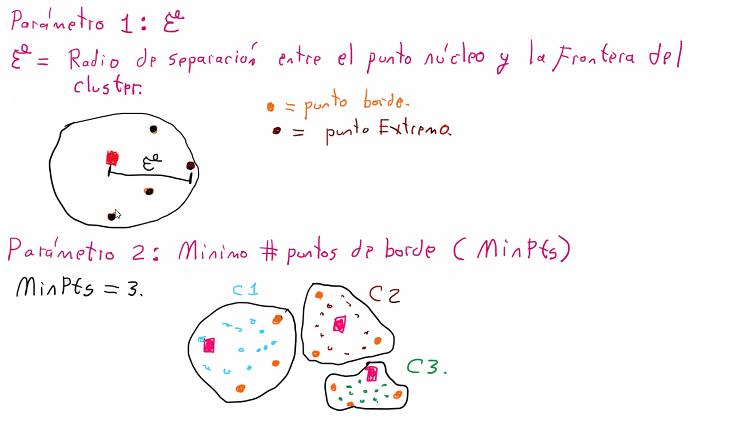 Parámetro 1: ε
ε = Radio de separación entre el punto núcleo y la Frontera del
cluster.
= punto borde.
= punto Extremo.
ε
Parámetro 2: Minimo # puntos de borde (MinPts)
MinPts = 3.
C1
C2
C3.